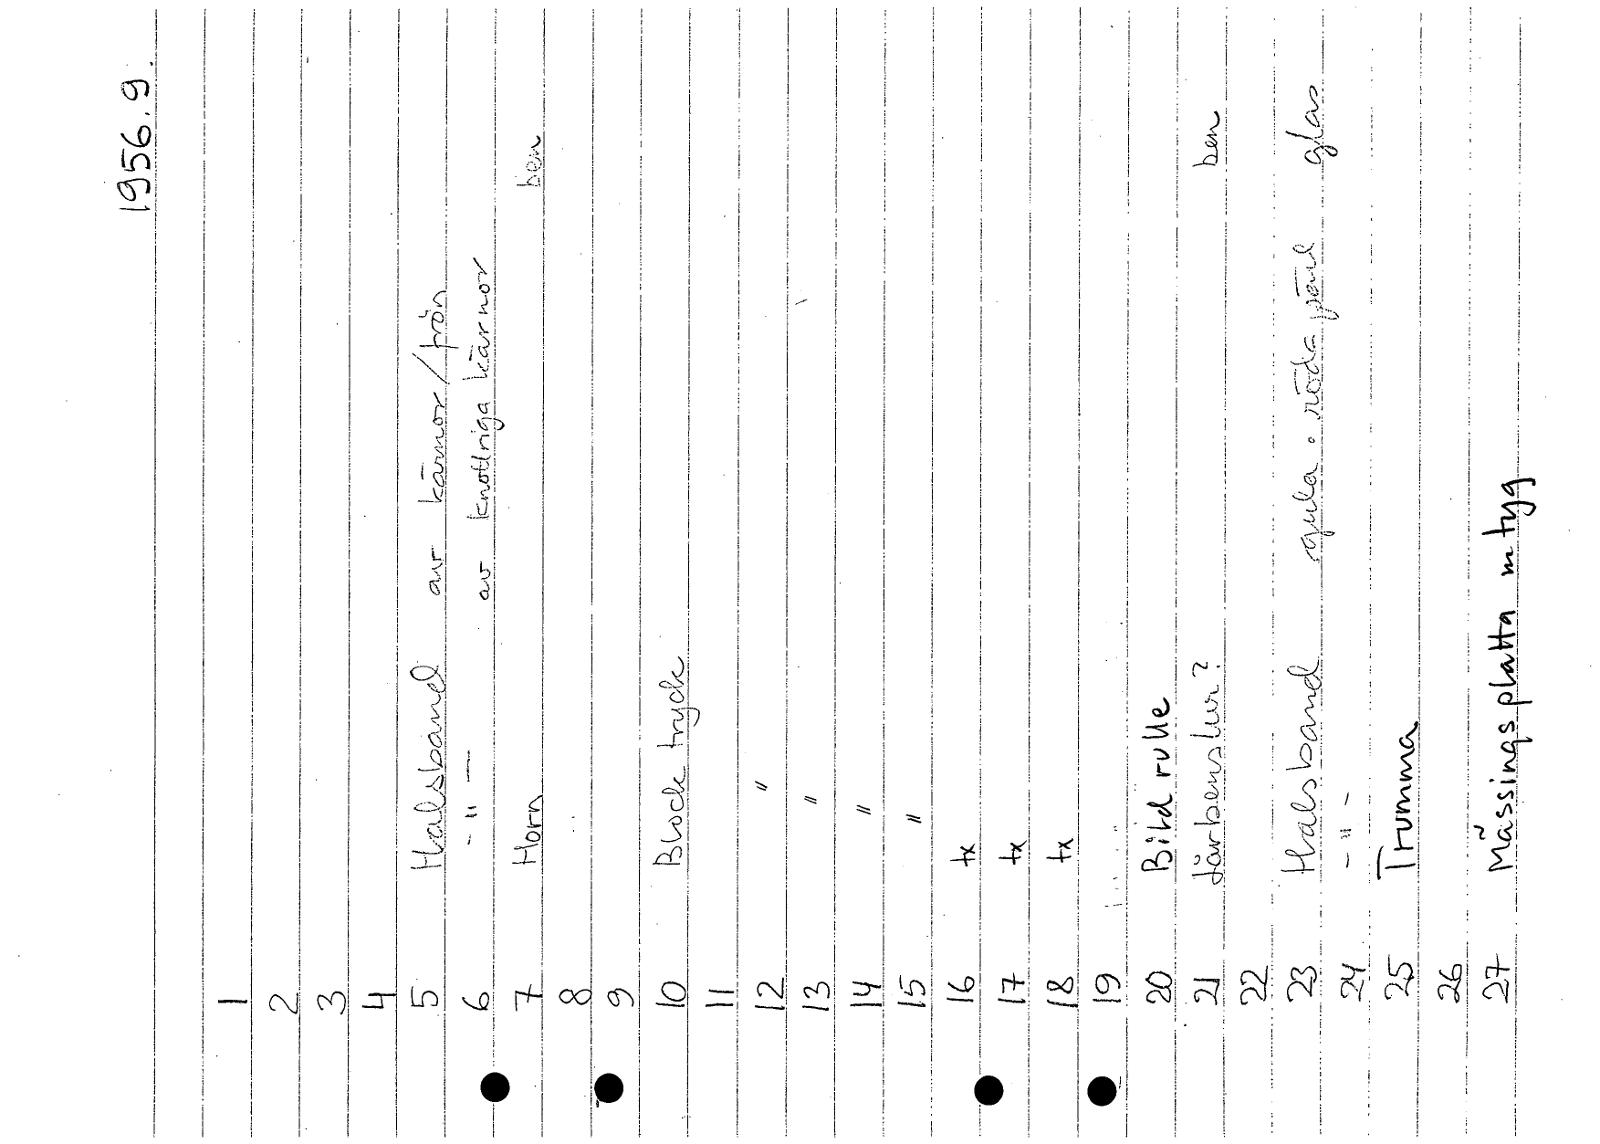 1956.9.
1
2
3
4
5 Halsband av kärnor/frön
6 -"- av knottriga kärnor
7 Horn ben
8
9
10 Block tryck
11
12 "
13 "
14 "
15 "
16 tx
17 tx
18 tx
19
20 Bild rulle
21 lårbenslur? ben
22
23 Halsband gula o röda pärl glas
24 -"-
25 Trumma
26
27 Mässingsplatta m tyg